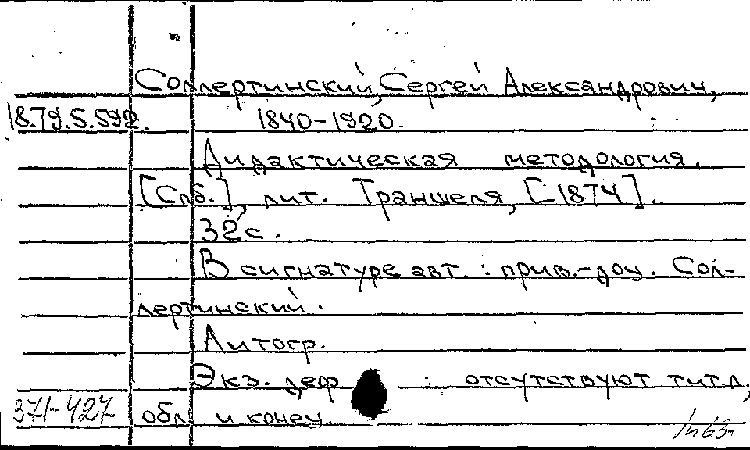 Соллертинский, Сергей Александрович,
18.79.5.592. 1840-1920.
Дидактическая методология.
[Спб.], лит. Траншеля, [-1874].
32 с.
В сигнатуре авт.: прив.-доц. Сол-
лертинский.
Литогр.
Экз. деф : отсутствуют тит.л,
371-427 обл и конец